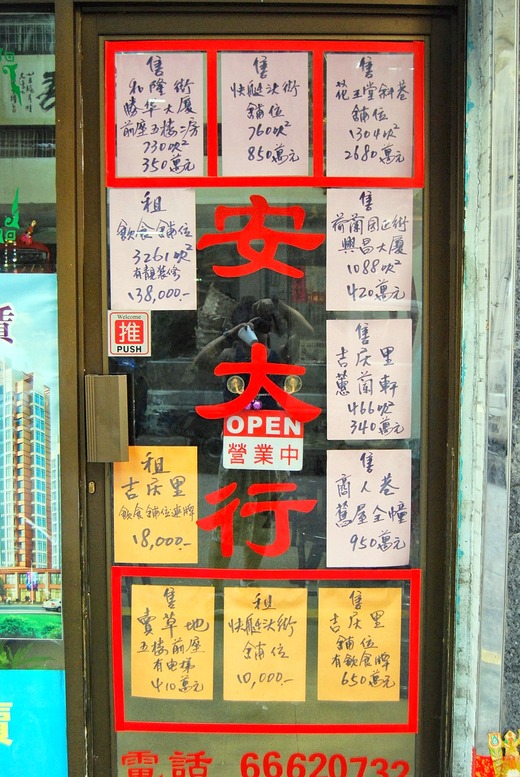 售
和隆街
勝华大厦
前座五楼二房
730呎²
350萬元
售
快艇头街
舖位
760呎²
850萬元
售
花王堂斜巷
舖位
1304呎²
2680萬元
租
飲食舖位
3261呎²
有靓裝修
138,000.-
售
荷蘭园正街
興昌大厦
1088呎²
420萬元
安
大
行
Welcome
推
PUSH
售
吉庆里
蕙蘭軒
466呎²
340萬元
OPEN
營業中
租
吉庆里
飲食舖位連牌
18,000.-
售
商人巷
舊屋全幢
950萬元
售
賣草地
五楼前座
有电梯
410萬元
租
快艇头街
舖位
10,000.-
售
吉庆里
舖位
有飲食牌
650萬元
電話 66620732